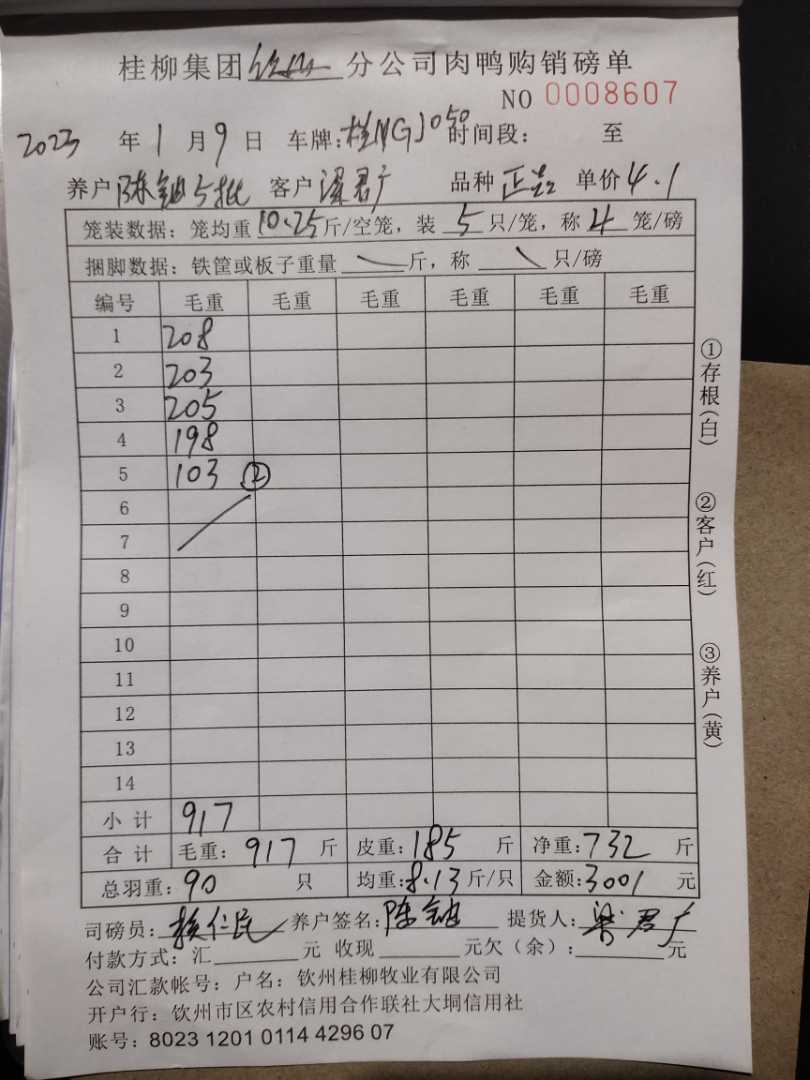 桂柳集团钦州分公司肉鸭购销磅单
NO 0008607
2023年1月9日 车牌:桂NGJ050 时间段: 至
养户 陈 5批 客户 梁君广 品种 正品 单价 4.1
笼装数据:笼均重 10.25 斤/空笼,装 5 只/笼,称 4 笼/磅
捆脚数据:铁筐或板子重量 \ 斤,称 \ 只/磅
编号 毛重 毛重 毛重 毛重 毛重 毛重
1 208
2 203
3 205
4 198
5 103 ②
6
7
8
9
10
11
12
13
14
小计 917
合计 毛重:917 斤 皮重:185 斤 净重:732 斤
总羽重:90 只 均重:8.13 斤/只 金额:3001 元
司磅员: 仁民 养户签名:陈 提货人:梁君广
付款方式:汇 元 收现 元欠(余): 元
公司汇款帐号:户名:钦州桂柳牧业有限公司
开户行:钦州市区农村信用合作联社大垌信用社
账号:8023 1201 0114 4296 07
①存根(白)
②客户(红)
③养户(黄)